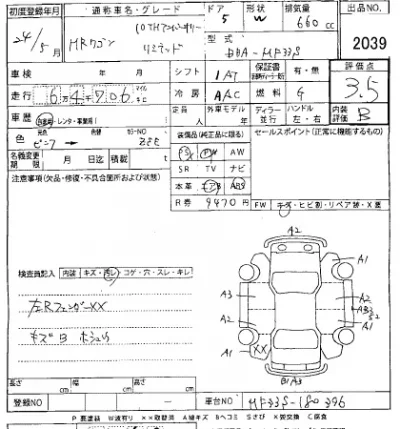 初度登録年月 通称車名・グレード ドア 形状 排気量 出品NO.
24/5 MRワゴン 10TH リミテッド 5 W 660 cc 2039
型式 DBA-MF33S
車検 年 月 シフト IAT 保証書 有・無 評価点
走行 6万4千706 冷房 AAC 燃料 G 3.5
車歴 自家用・レンタ・事業用 定員 人 外車モデル ディーラー 並行 ハンドル 左・右 内装評価 B
色 ピンク カラーNO ZEE 装備品(純正品に限る) セールスポイント(正常に機能するもの)
名義変更期限 月 日迄 積載 t PS PW AW
注意事項(欠品・修復・不具合箇所及び状態) SR TV ナビ
本革 エアB ABS
R券 9470円 FW キズ・ヒビ割・リペア跡・X要
検査員記入 内装 キズ・汚レ コゲ・穴・スレ・キレ
左RフェンダーXX
キズ B ホシュウ
A2
A1
A3
A2
A2
A1
A1
XX
長さ cm 幅 cm 高さ cm
登録NO. 車台NO. MF33S-180396
P 要塗装 W波有り ××取替済 A線キズ Bヘコミ Sさび X要交換 C腐食